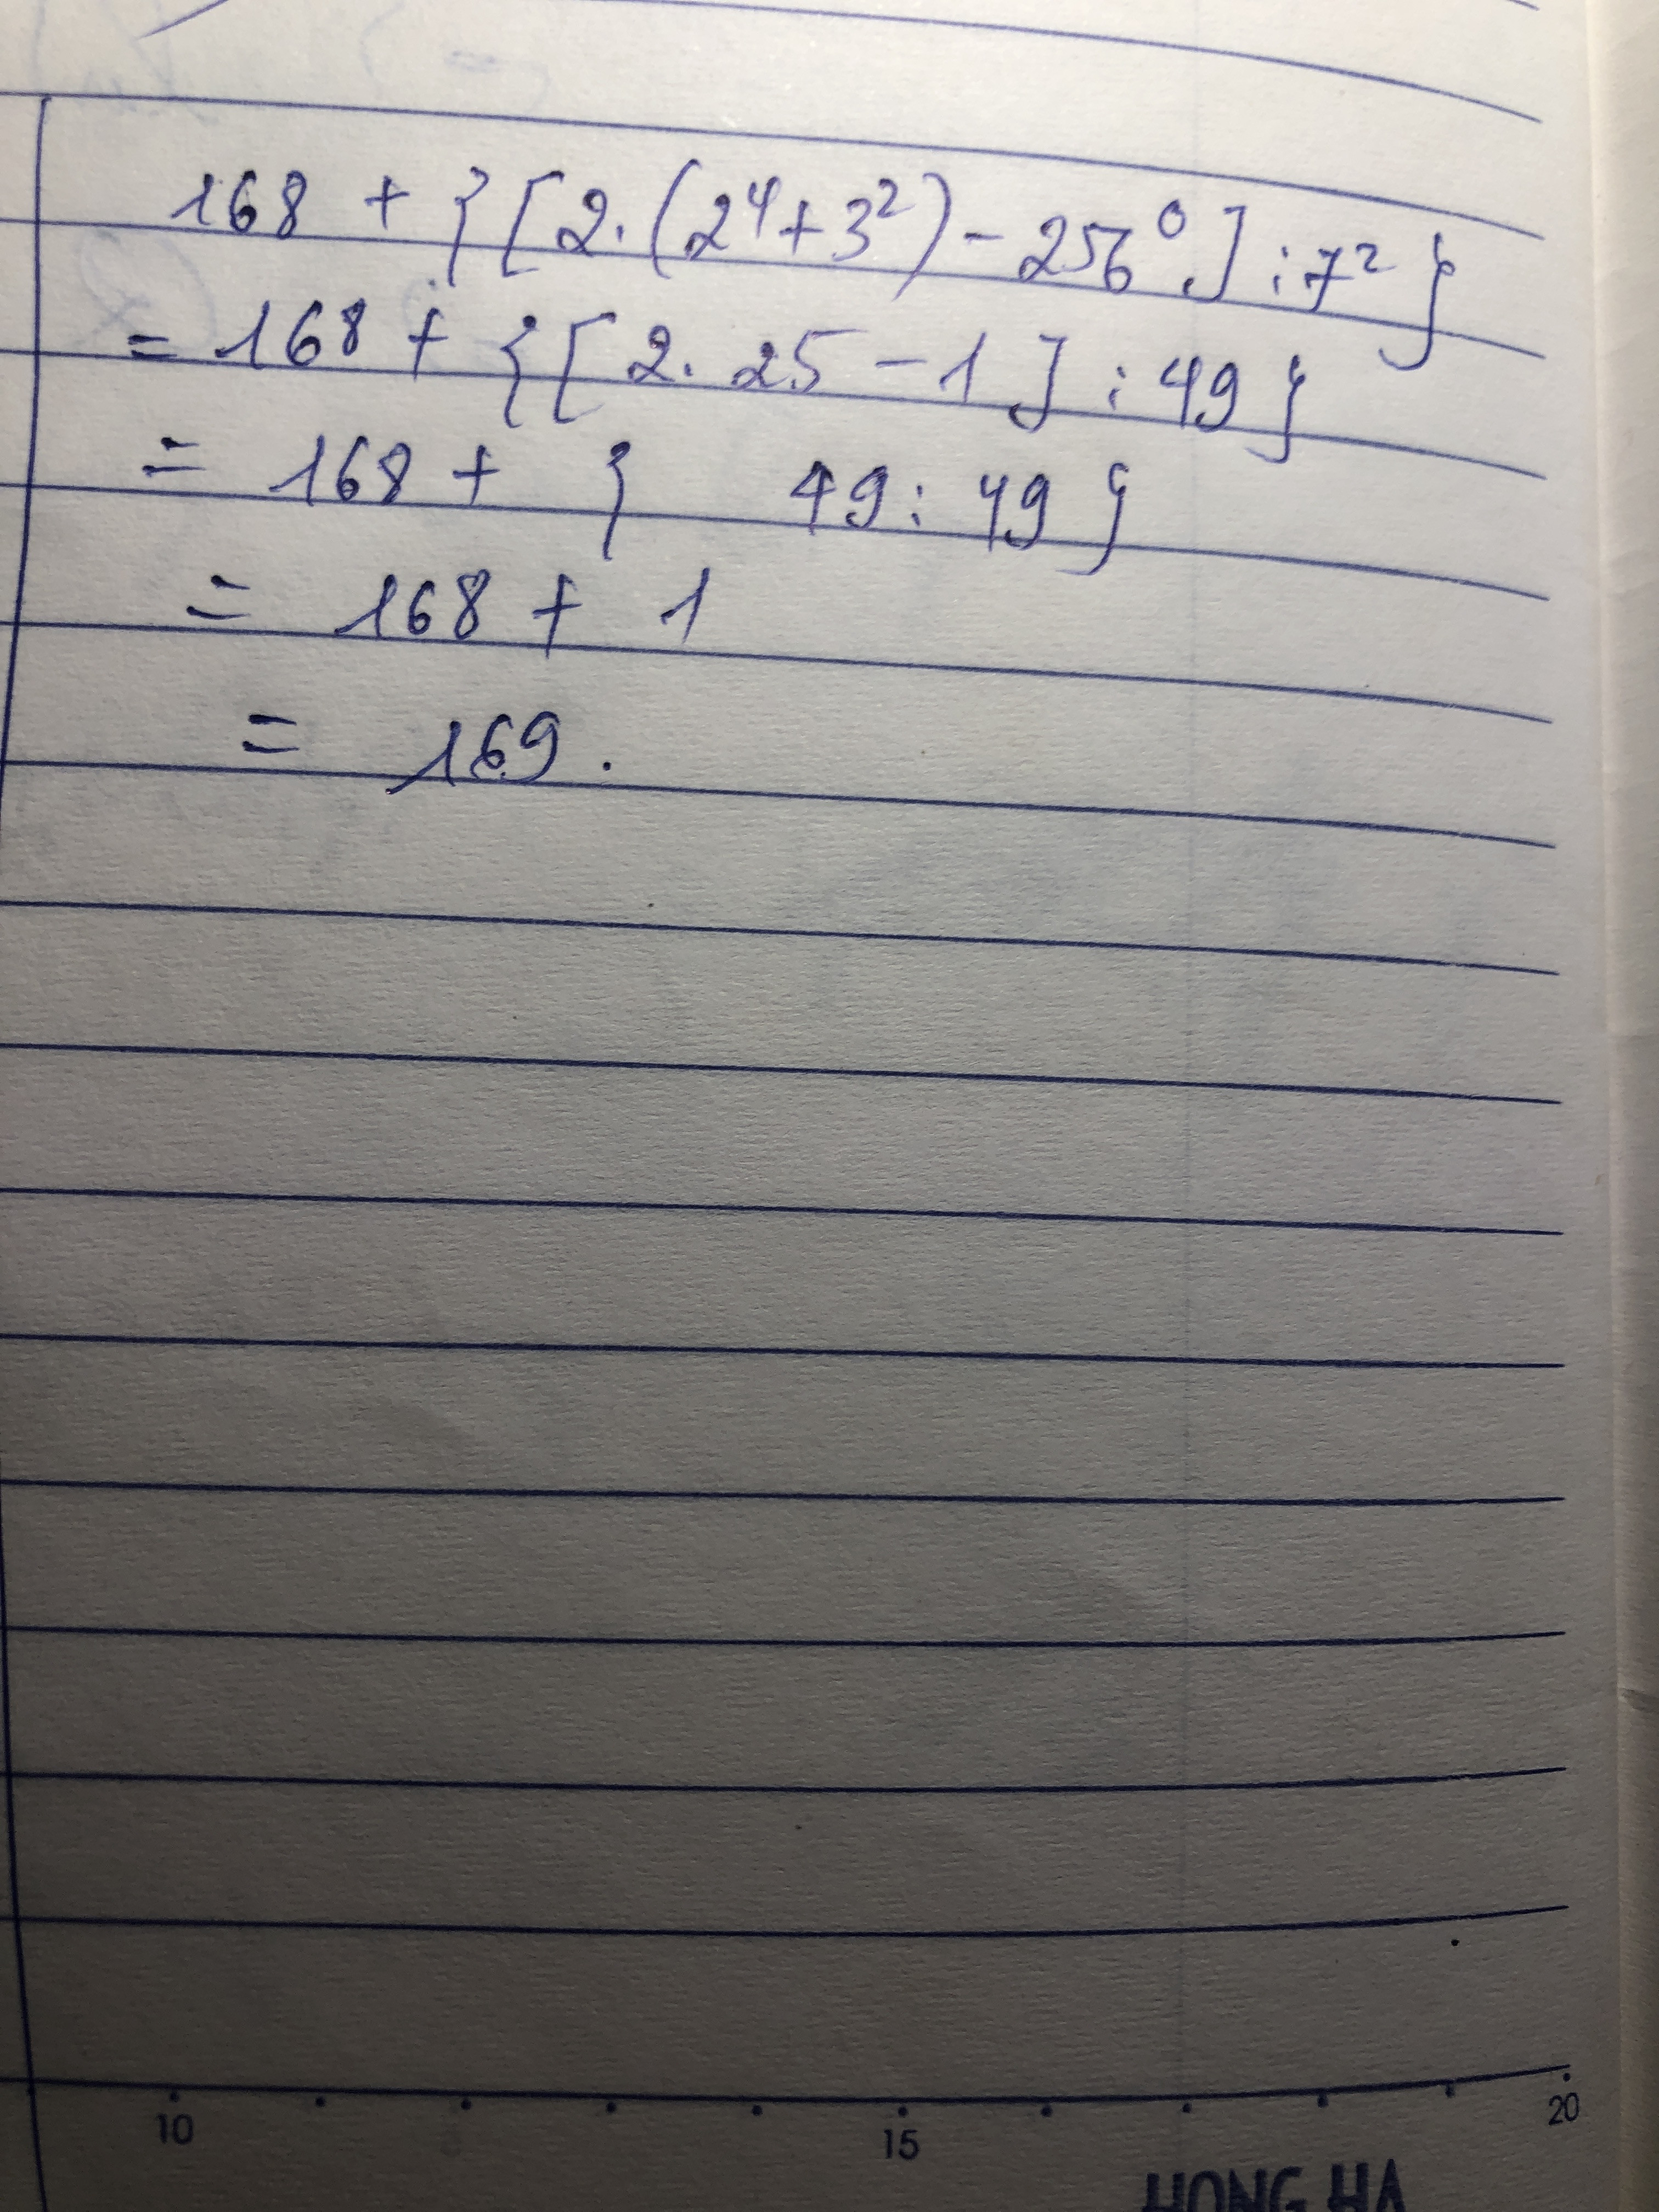 168 + {[2.(2⁴+3²) - 256⁰] : 7²}
= 168 + {[2. 25 - 1] : 49}
= 168 + { 49 : 49}
= 168 + 1
= 169.
10 15 20
HONG HA